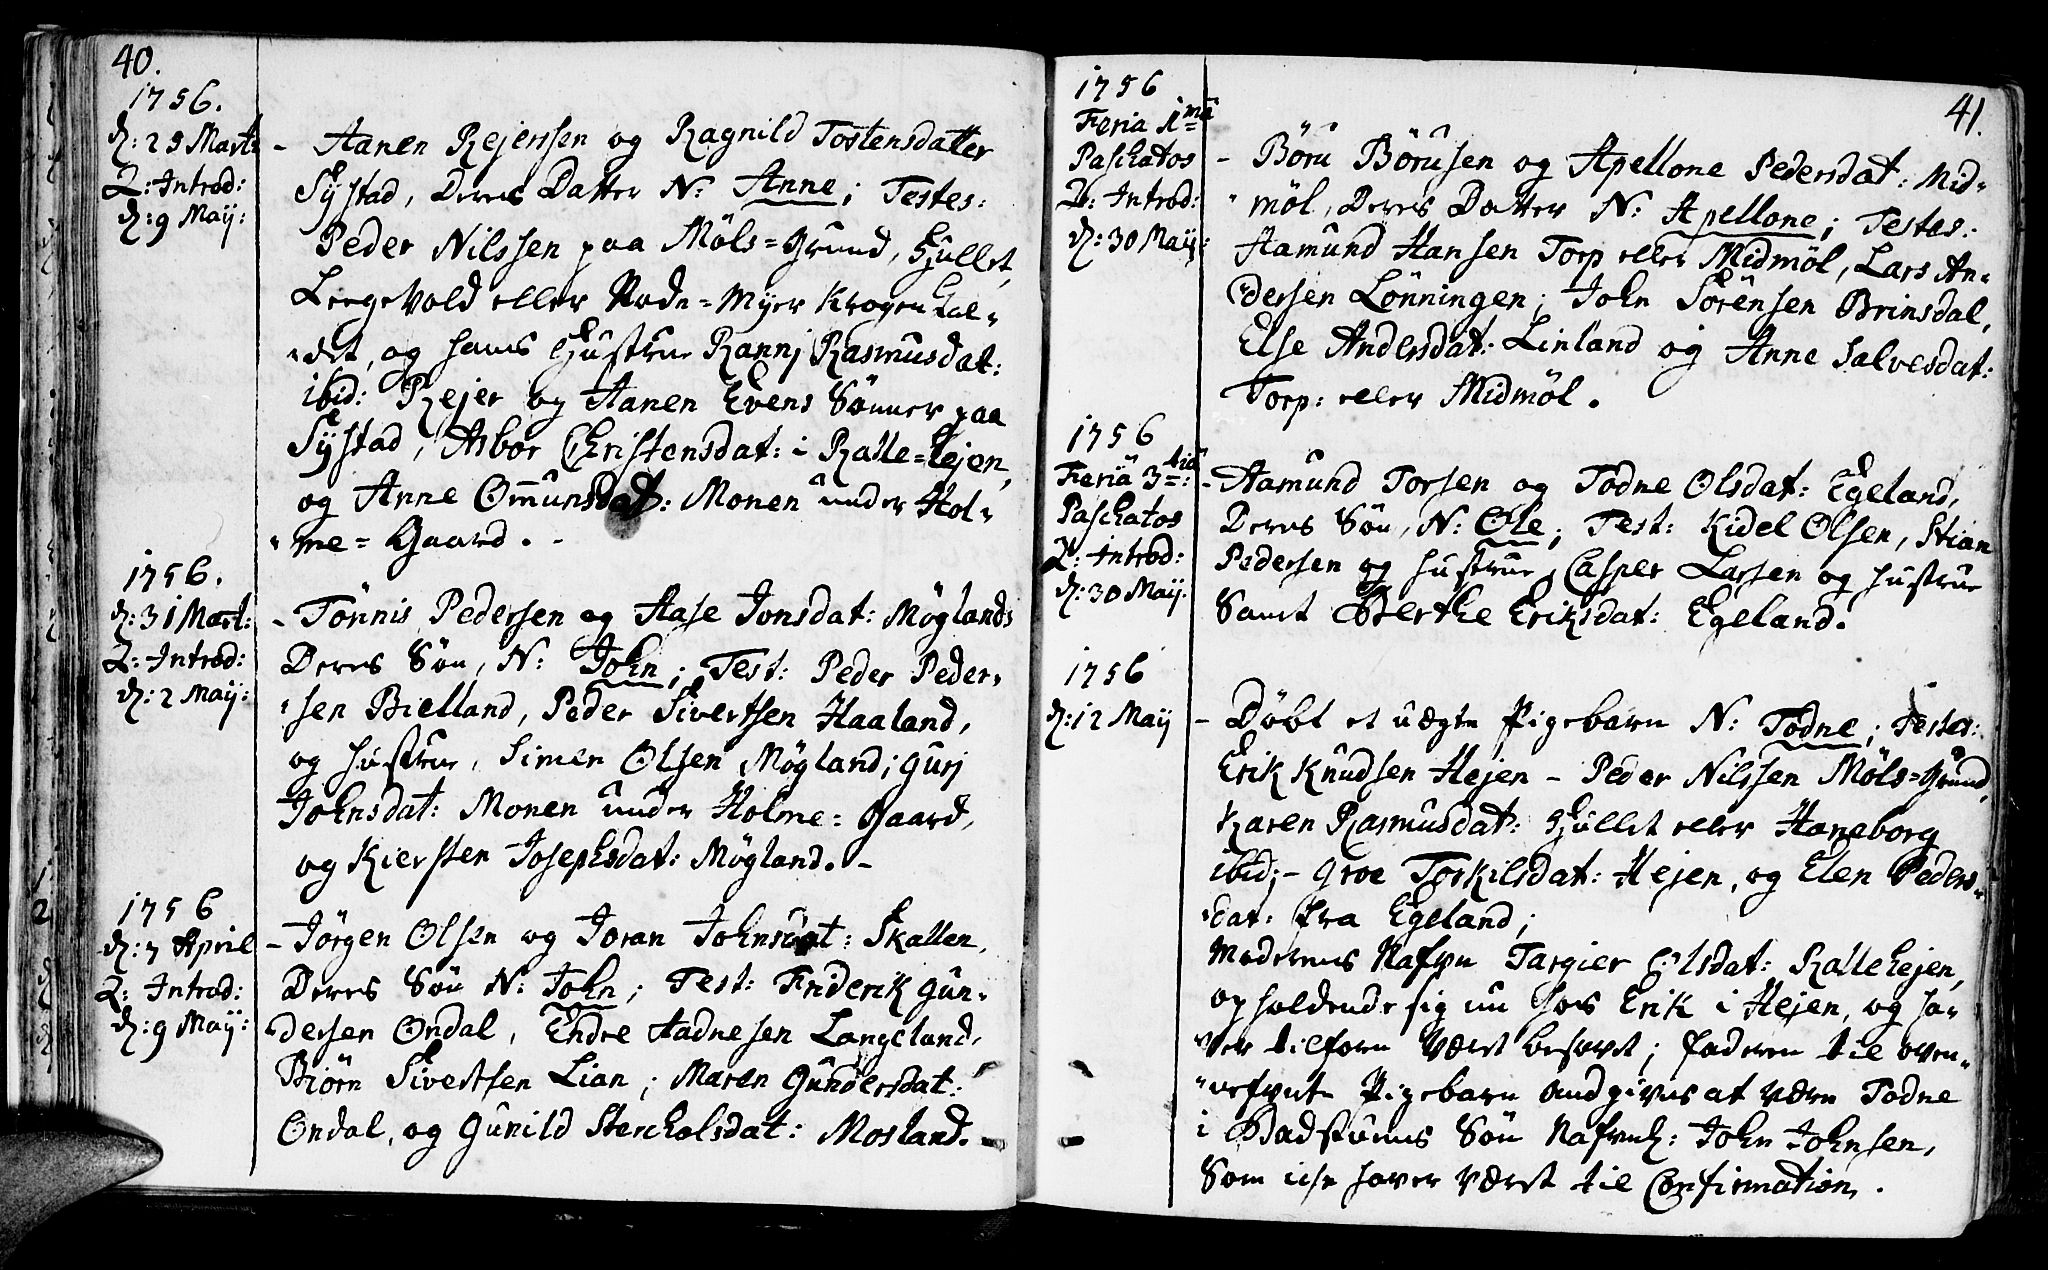 40.
1756.
d: 29 Mart:
Q: Introd:
d: 9 Maij:
- Aanen Rejerssen og Ragnild Tostensdatter
Sÿstad, Deres Datter N: Anne; Testes:
Peder Nilssen paa Möls=Grund, Hjullet,
Leegevold eller Rode=Myer Krogen kal-
-det, og hans Hustrue Rannj Rasmusdat:
ibid: Rejer og Aanen Evens Sönner paa
Sÿstad, Asbor Christensdat: i Ralle=hejen,
og Anne Omunsdat: Monen under Hol-
-me=Gaard. -
1756.
d: 31 Mart:
Q: Introd:
d: 2 Maij:
- Tönnis Pedersen og Aase Jonsdat: Möglands
Deres Sön, N: John; Test: Peder Peder-
-sen Bielland, Peder Sivertsen Haaland,
og Hustrue, Simen Olsen Mögland; Gurj
Johnsdat: Monen under Holme=Gaard,
og Kiersten Josephsdat: Mögland. -
1756
d: 7 April
Q: Introd:
d: 9 Maij:
- Jörgen Olsen og Joran Johnsdat: Skallen,
Deres Sön N: John; Test: Friderik Gun-
-dersen Ondal, Endre Aadnesen Langeland,
Biörn Sivertsen Lian; Maren Gundersdat:
Ondal, og Gunild Stercholsdat: Mosland.
41.
1756
Feria 1ma
Paschatos
Q: Introd:
d: 30 Maij:
- Böru Börusen og Apellone Pedersdat: Mid-
-möl, Deres Datter N: Apellone; Testes:
Aamund Hansen Torp eller Midmöl, Lars An-
-dersen Lönningen; John Sörensen Brinsdal,
Else Andersdat: Linland og Anne Salvesdat:
Torp: eller Midmöl.
1756
Feriä 3tia:
Paschatos
Q: Introd:
d: 30 Maij.
- Aamund Torsen og Todne Olsdat: Egeland,
Deres Sön, N: Ole; Test: Kidel Olsen, Stian
Pedersen og Hustrue, Casper Larsen og Hustrue
Samt Berthe Eriksdat: Egeland.
1756
d: 12 Maij
- Döbt et uægte Pigebarn N: Todne; Testes:
Erik Knudsen Hejen - Peder Nilssen Möls=Grund,
Karen Rasmusdat: Hjullet eller Haneborg
ibid; - Groe Torkilsdat: Hejen, og Elen Peders-
-dat: fra Egeland;
Moderens Nafvn Targier Olsdat: Rallehejen,
opholdende sig nu hos Erik i Hejen, og ha-
-ver tilforn været besovet; faderen til oven-
-nefnte Pigebarn andgives at være Todne
i Badstuens Sön Nafnl: John Johnsen,
Som icke haver været til Confirmation.